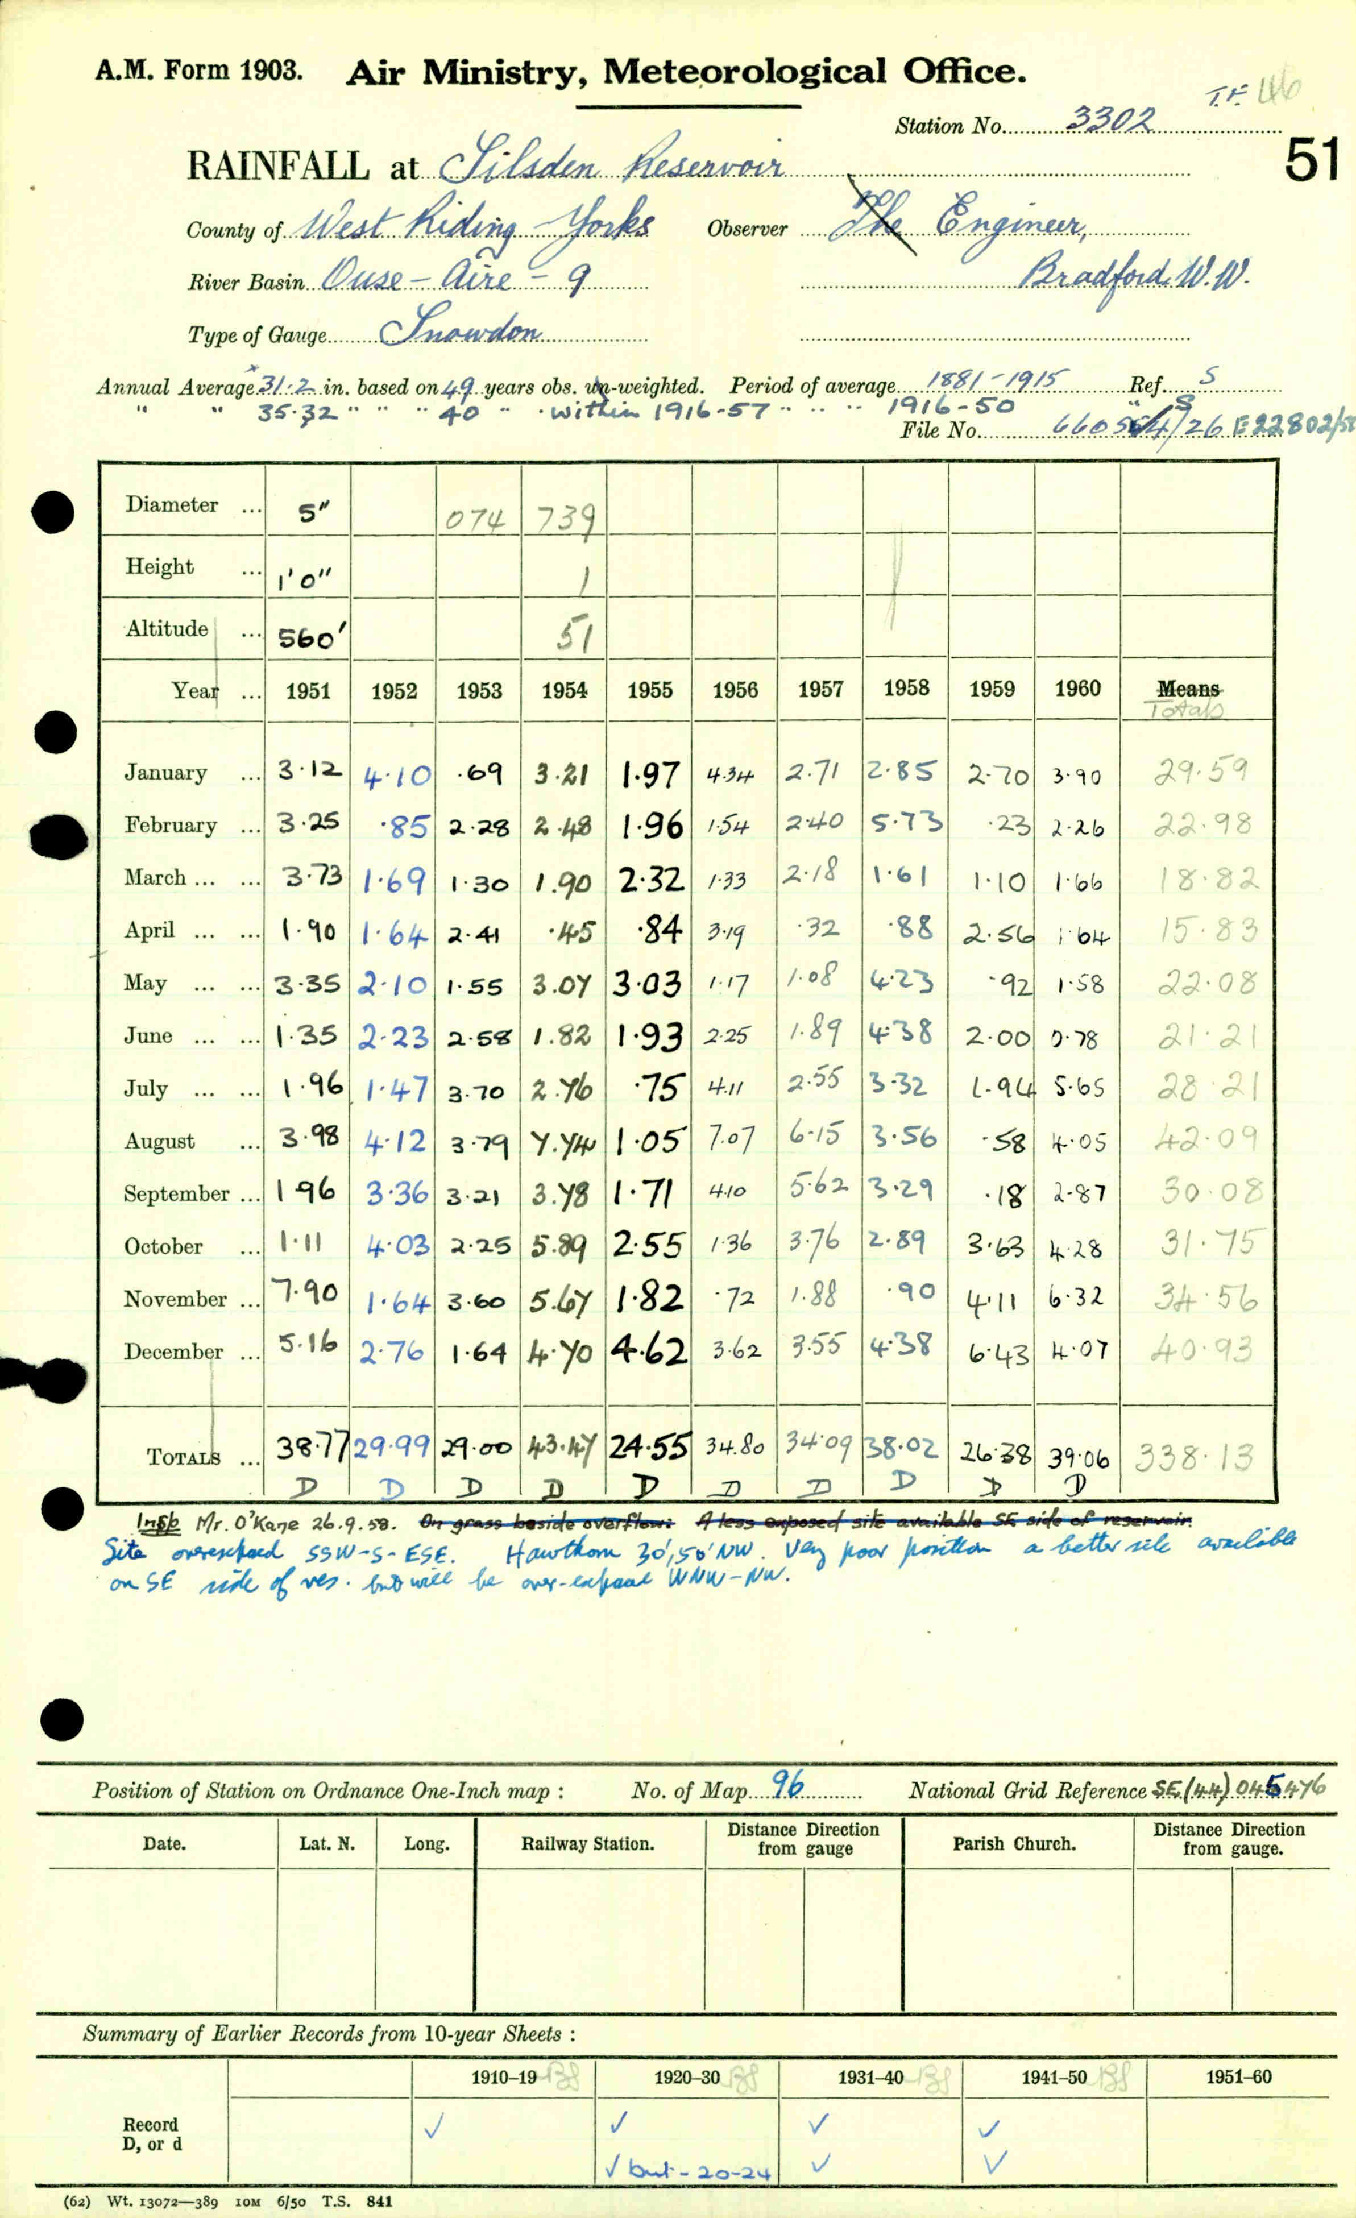 A.M. Form 1903. Air Ministry, Meteorological Office.
T.F. 46
Station No. 3302
51
RAINFALL at Silsden Reservoir
County of West Riding - Yorks Observer The Engineer,
River Basin Ouse - Aire - 9 Bradford W.W.
Type of Gauge Snowdon
Annual Average 31·2 in. based on 49 years obs. un-weighted. Period of average 1881-1915 Ref. S
" " 35·32 " " " 40 " within 1916-57 " " " 1916-50 " S
File No. E22802/5
Diameter ... 5" 074 739
Height ... 1'0" 1
Altitude ... 560' 51
Year ... 1951 1952 1953 1954 1955 1956 1957 1958 1959 1960 Means
Totals
January ... 3·12 4·10 ·69 3·21 1·97 4·34 2·71 2·85 2·70 3·90 29·59
February ... 3·25 ·85 2·28 2·48 1·96 1·54 2·40 5·73 ·23 2·26 22·98
March ... ... 3·73 1·69 1·30 1·90 2·32 1·33 2·18 1·61 1·10 1·66 18·82
April ... ... 1·90 1·64 2·41 ·45 ·84 3·19 ·32 ·88 2·56 1·64 15·83
May ... ... 3·35 2·10 1·55 3·07 3·03 1·17 1·08 4·23 ·92 1·58 22·08
June ... ... 1·35 2·23 2·58 1·82 1·93 2·25 1·89 4·38 2·00 0·78 21·21
July ... ... 1·96 1·47 3·70 2·76 ·75 4·11 2·55 3·32 1·94 5·65 28·21
August ... 3·98 4·12 3·79 7·74 1·05 7·07 6·15 3·56 ·58 4·05 42·09
September ... 1 96 3·36 3·21 3·78 1·71 4·10 5·62 3·29 ·18 2·87 30·08
October ... 1·11 4·03 2·25 5·89 2·55 1·36 3·76 2·89 3·63 4·28 31·75
November ... 7·90 1·64 3·60 5·67 1·82 ·72 1·88 ·90 4·11 6·32 34·56
December ... 5·16 2·76 1·64 4·70 4·62 3·62 3·55 4·38 6·43 4·07 40·93
TOTALS ... 38·77 29·99 29·00 43·47 24·55 34·80 34·09 38·02 26·38 39·06 338·13
D D D D D D D D D D
Insp Mr. O'Kane 26.9.58. On grass beside overflow. A less exposed site available SE side of reservoir.
Site overexposed SSW-S-ESE. Hawthorn 30', 50' NW. Very poor position a better site available
on SE side of res. but will be over-exposed WNW-NW.
Position of Station on Ordnance One-Inch map : No. of Map 96 National Grid Reference SE(44) 045476
Date. Lat. N. Long. Railway Station. Distance Direction from gauge Parish Church. Distance Direction from gauge.
Summary of Earlier Records from 10-year Sheets :
1910–19 1920–30 1931–40 1941–50 1951–60
Record ✓ ✓ ✓ ✓
D, or d ✓ but - 20-24 ✓ ✓
(62) Wt. 13072—389 10M 6/50 T.S. 841